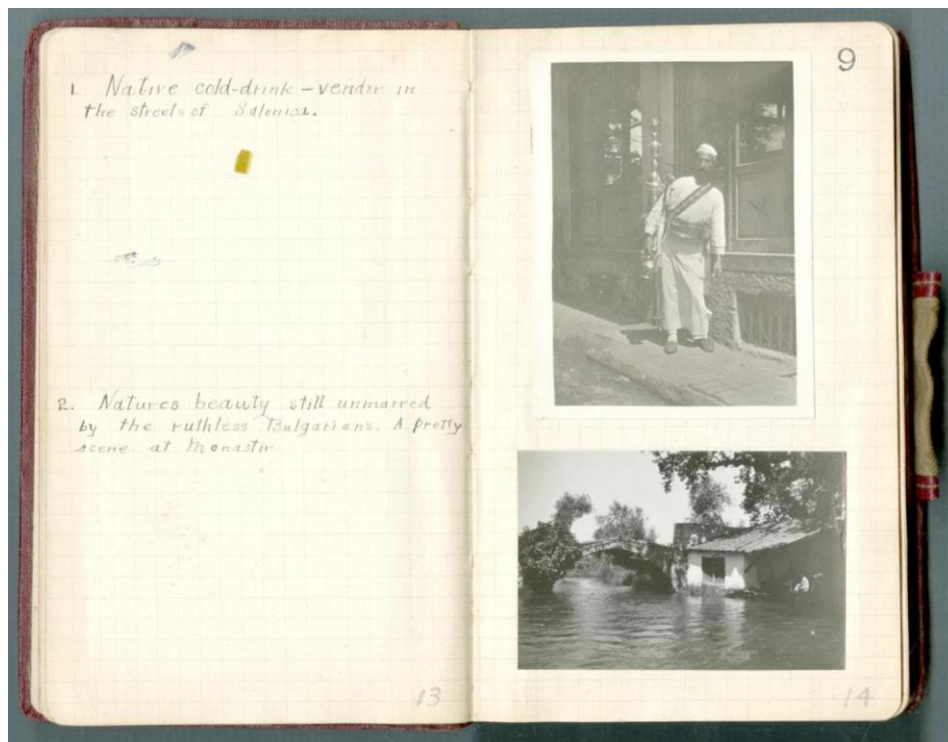 1. Native cold-drink-vender in
the streets of Salonica.
2. Natures beauty still unmarred
by the ruthless Bulgarians. A pretty
scene at Monastir
13
9
14